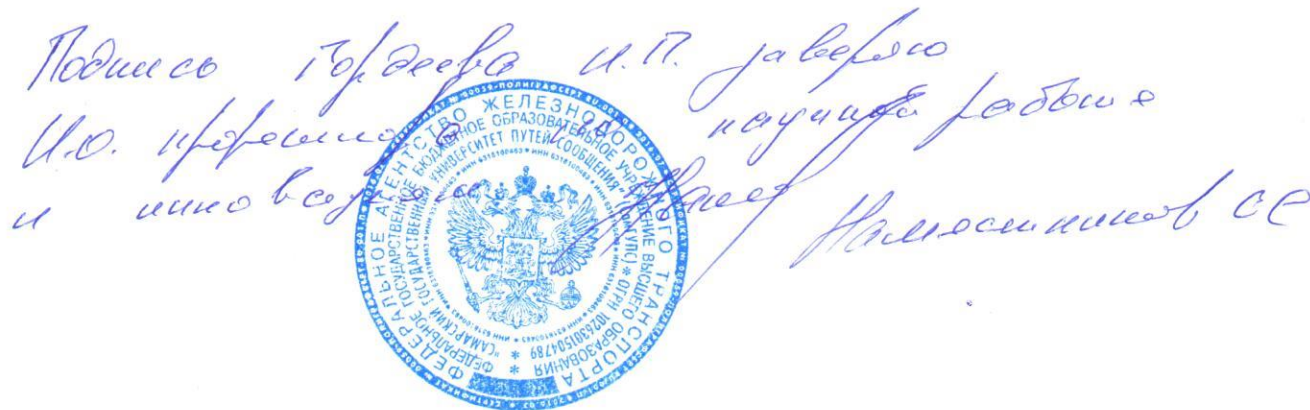 Подпись Гордеева И.П. заверяю
И.о. проректора по научной работе
и инновациям
Наместников СС
ФЕДЕРАЛЬНОЕ АГЕНТСТВО ЖЕЛЕЗНОДОРОЖНОГО ТРАНСПОРТА
ФЕДЕРАЛЬНОЕ ГОСУДАРСТВЕННОЕ БЮДЖЕТНОЕ ОБРАЗОВАТЕЛЬНОЕ УЧРЕЖДЕНИЕ ВЫСШЕГО ОБРАЗОВАНИЯ
"САМАРСКИЙ ГОСУДАРСТВЕННЫЙ УНИВЕРСИТЕТ ПУТЕЙ СООБЩЕНИЯ" (САМГУПС) * ОГРН 1026301504789 *
* ИНН 6318100463 * ИНН 6318100463 * ИНН 6318100463